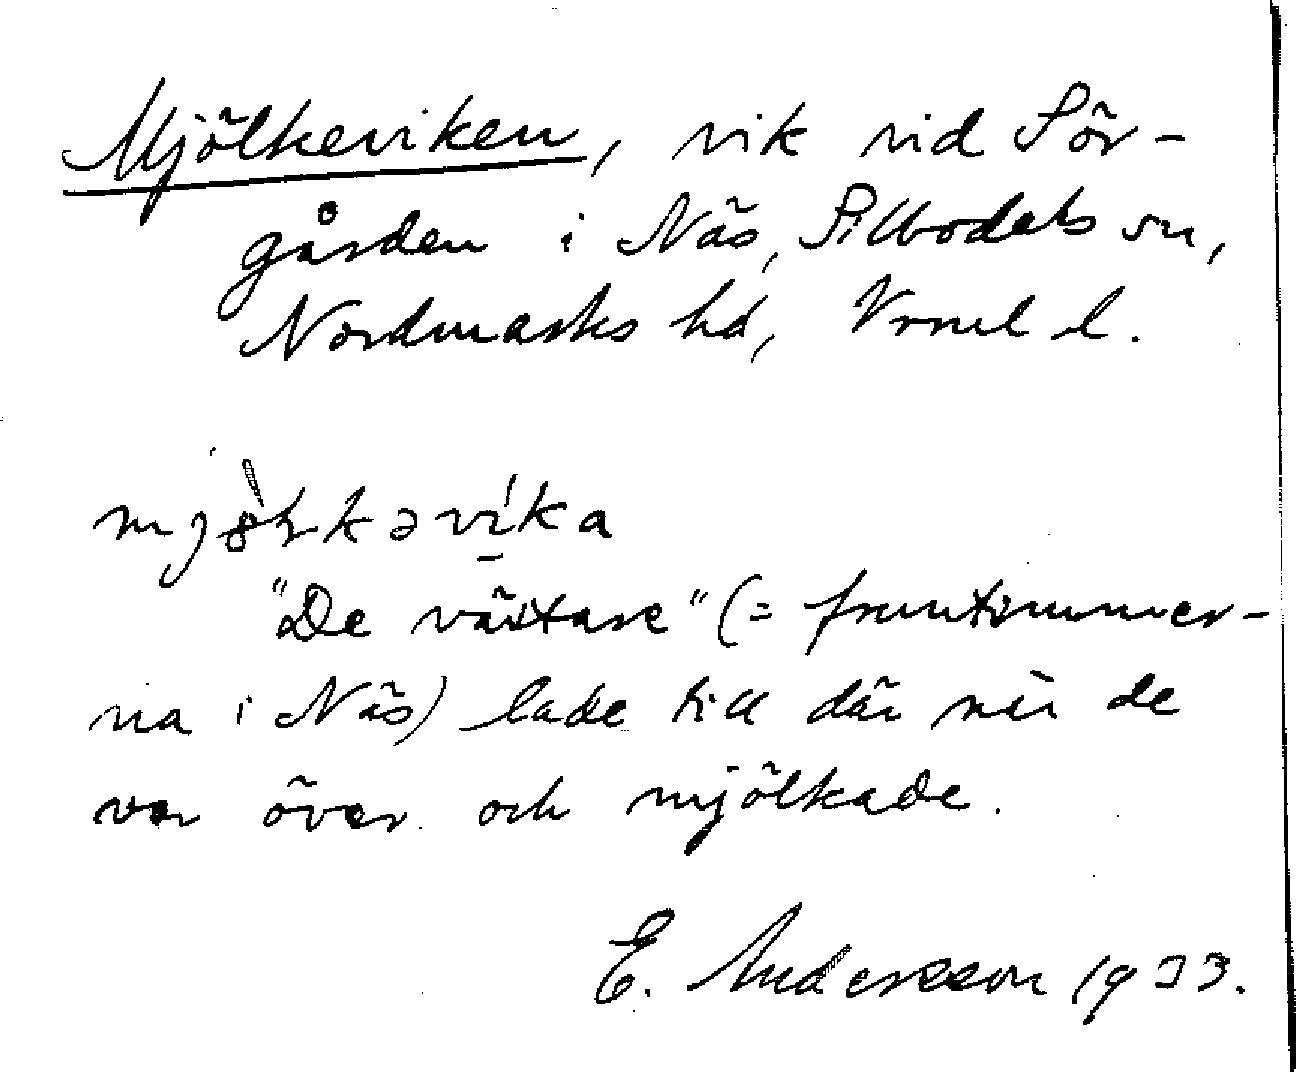 Mjölkeviken, vik vid Sör-
gården i Näs, Silbodals sn,
Nordmarks hd, Vrml l.
"De väštare" (= fruntimmer-
na i Näs) lade till där när de
var över och mjölkade.
E. Andersson 1933.